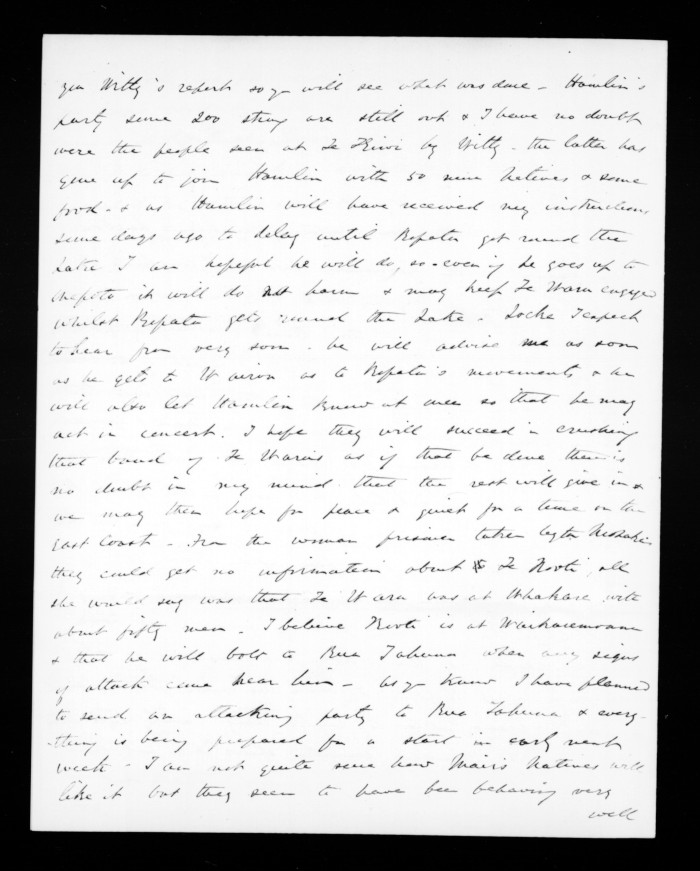 you Witty's report so yr will see what was done – Hamlin's
party some 200 strong are still out & I have no doubt
were the people seen at Te Kiwi by Witty – the latter has
gone up to join Hamlin with 50 more Natives & some
food – & as Hamlin will have received my instructions
some days ago to delay until Ropata got round the
Lake I am hopeful he will do so – even if he goes up to
it will do no harm & may keep Te Waru engaged
whilst Ropata gets round the Lake – Locke I expect
to hear from very soon – he will advise me as soon
as he gets to Wairoa as to Ropata's movements & he
will also let Hamlin know at once so that he may
act in concert. I hope they will succeed in crushing
that band of Te Waru's as if that be done there is
no doubt in my mind that the rest will give in &
we may then hope for peace & quiet for a time on the
East Coast – From the woman prisoner taken by the
they could get no information about Te Kooti, all
she would say was that Te Waru was at Whakare with
about fifty men. I believe Kooti is at Waikaremoana
& that he will bolt to Rua Tahuna when any signs
of attack come near him – as yr know I have planned
to send an attacking party to Rua Tahuna & every-
thing is being prepared for a start in early next
week – I am not quite sure how Mair's Natives will
like it but they seem to have been behaving very
well